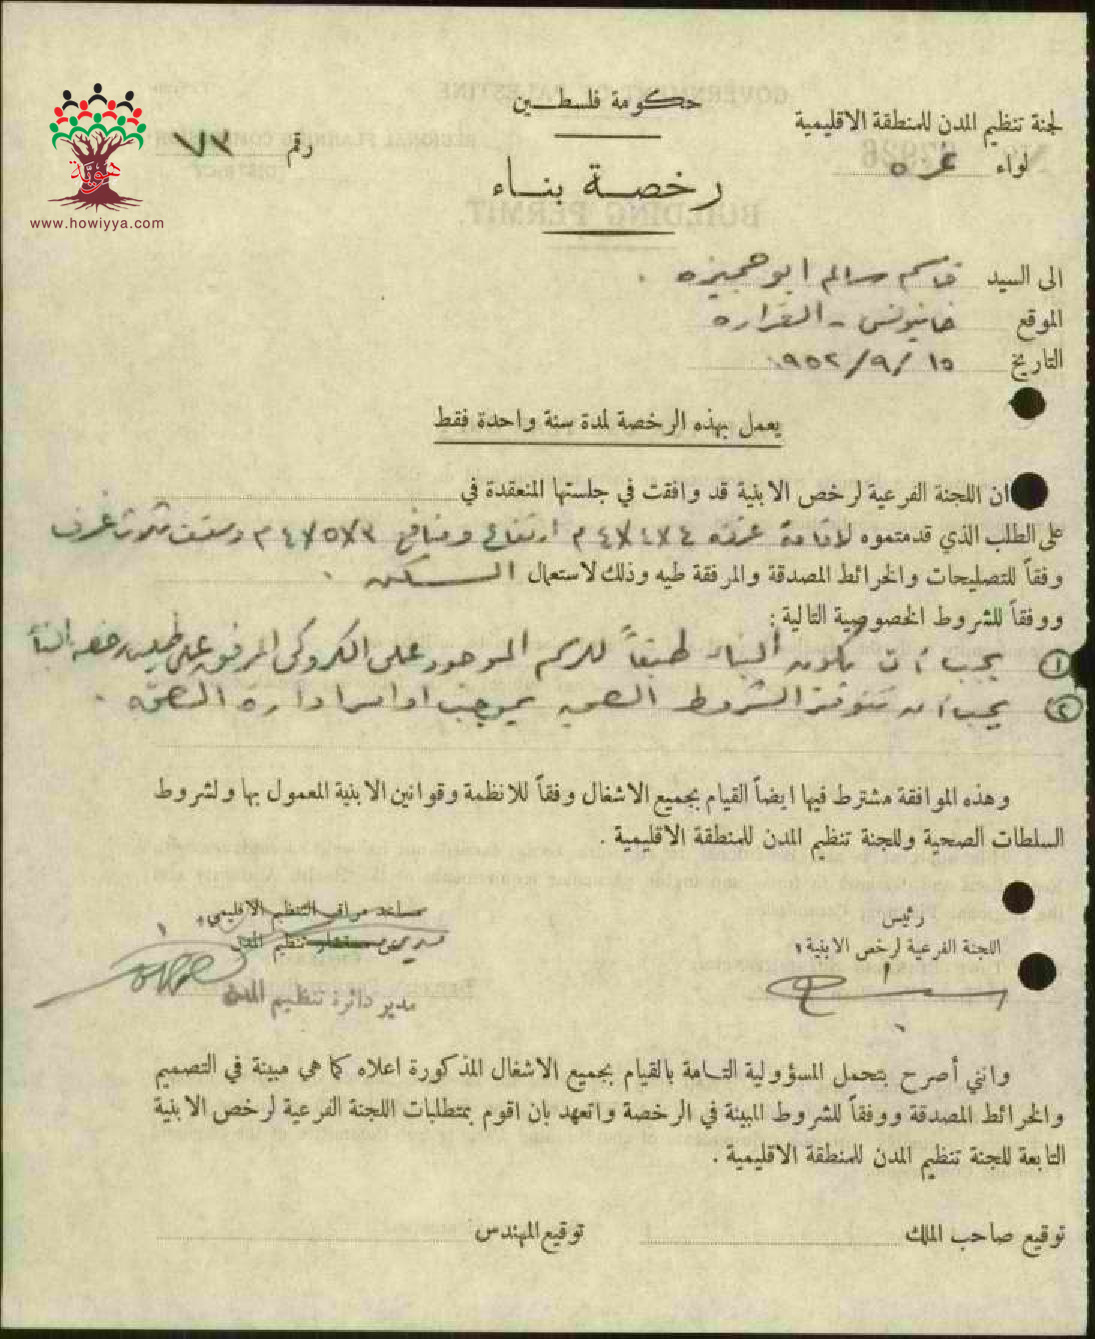 حكومة فلسطين
لجنة تنظيم المدن للمنطقة الاقليمية
لواء غزه
رقم ٧٢
هوية
www.howiyya.com
رخصة بناء
الى السيد قاسم سالم ابو حجيزه .
الموقع خانيونس - القراره
التاريخ ١٥ /٩/ ١٩٥٢
يعمل بهذه الرخصة لمدة سنة واحدة فقط
ان اللجنة الفرعية لرخص الابنية قد وافقت في جلستها المنعقدة في
على الطلب الذي قدمتموه لاقامة غرفه ٤٧٤٧٤ م ارتفاع ومنافع ٣٧٥٧٤ م وسقف ثلاث غرف
وفقاً للتصليحات والخرائط المصدقة والمرفقة طيه وذلك لاستعمال السكن .
ووفقاً للشروط الخصوصية التالية :
١ يجب أن يكون البناء طبقاً للرسم الموجود على الكروكى المرفق على رخصه البناء
٢ يجب أن تتوفر الشروط الصحيه بموجب اوامر ادارة الصحه .
وهذه الموافقة مشترط فيها ايضاً القيام بجميع الاشغال وفقاً للانظمة وقوانين الابنية المعمول بها ولشروط
السلطات الصحية وللجنة تنظيم المدن للمنطقة الاقليمية .
رئيس
اللجنة الفرعية لرخص الابنية ؛
مساعد مراقب التنظيم الاقليمي ؛
مستشار تنظيم المدن
مدير دائرة تنظيم المدن
وانني أصرح بتحمل المسؤولية التامة بالقيام بجميع الاشغال المذكورة اعلاه كما هي مبينة في التصميم
والخرائط المصدقة ووفقاً للشروط المبينة في الرخصة واتعهد بان اقوم بمتطلبات اللجنة الفرعية لرخص الابنية
التابعة للجنة تنظيم المدن للمنطقة الاقليمية .
توقيع صاحب الملك
توقيع المهندس